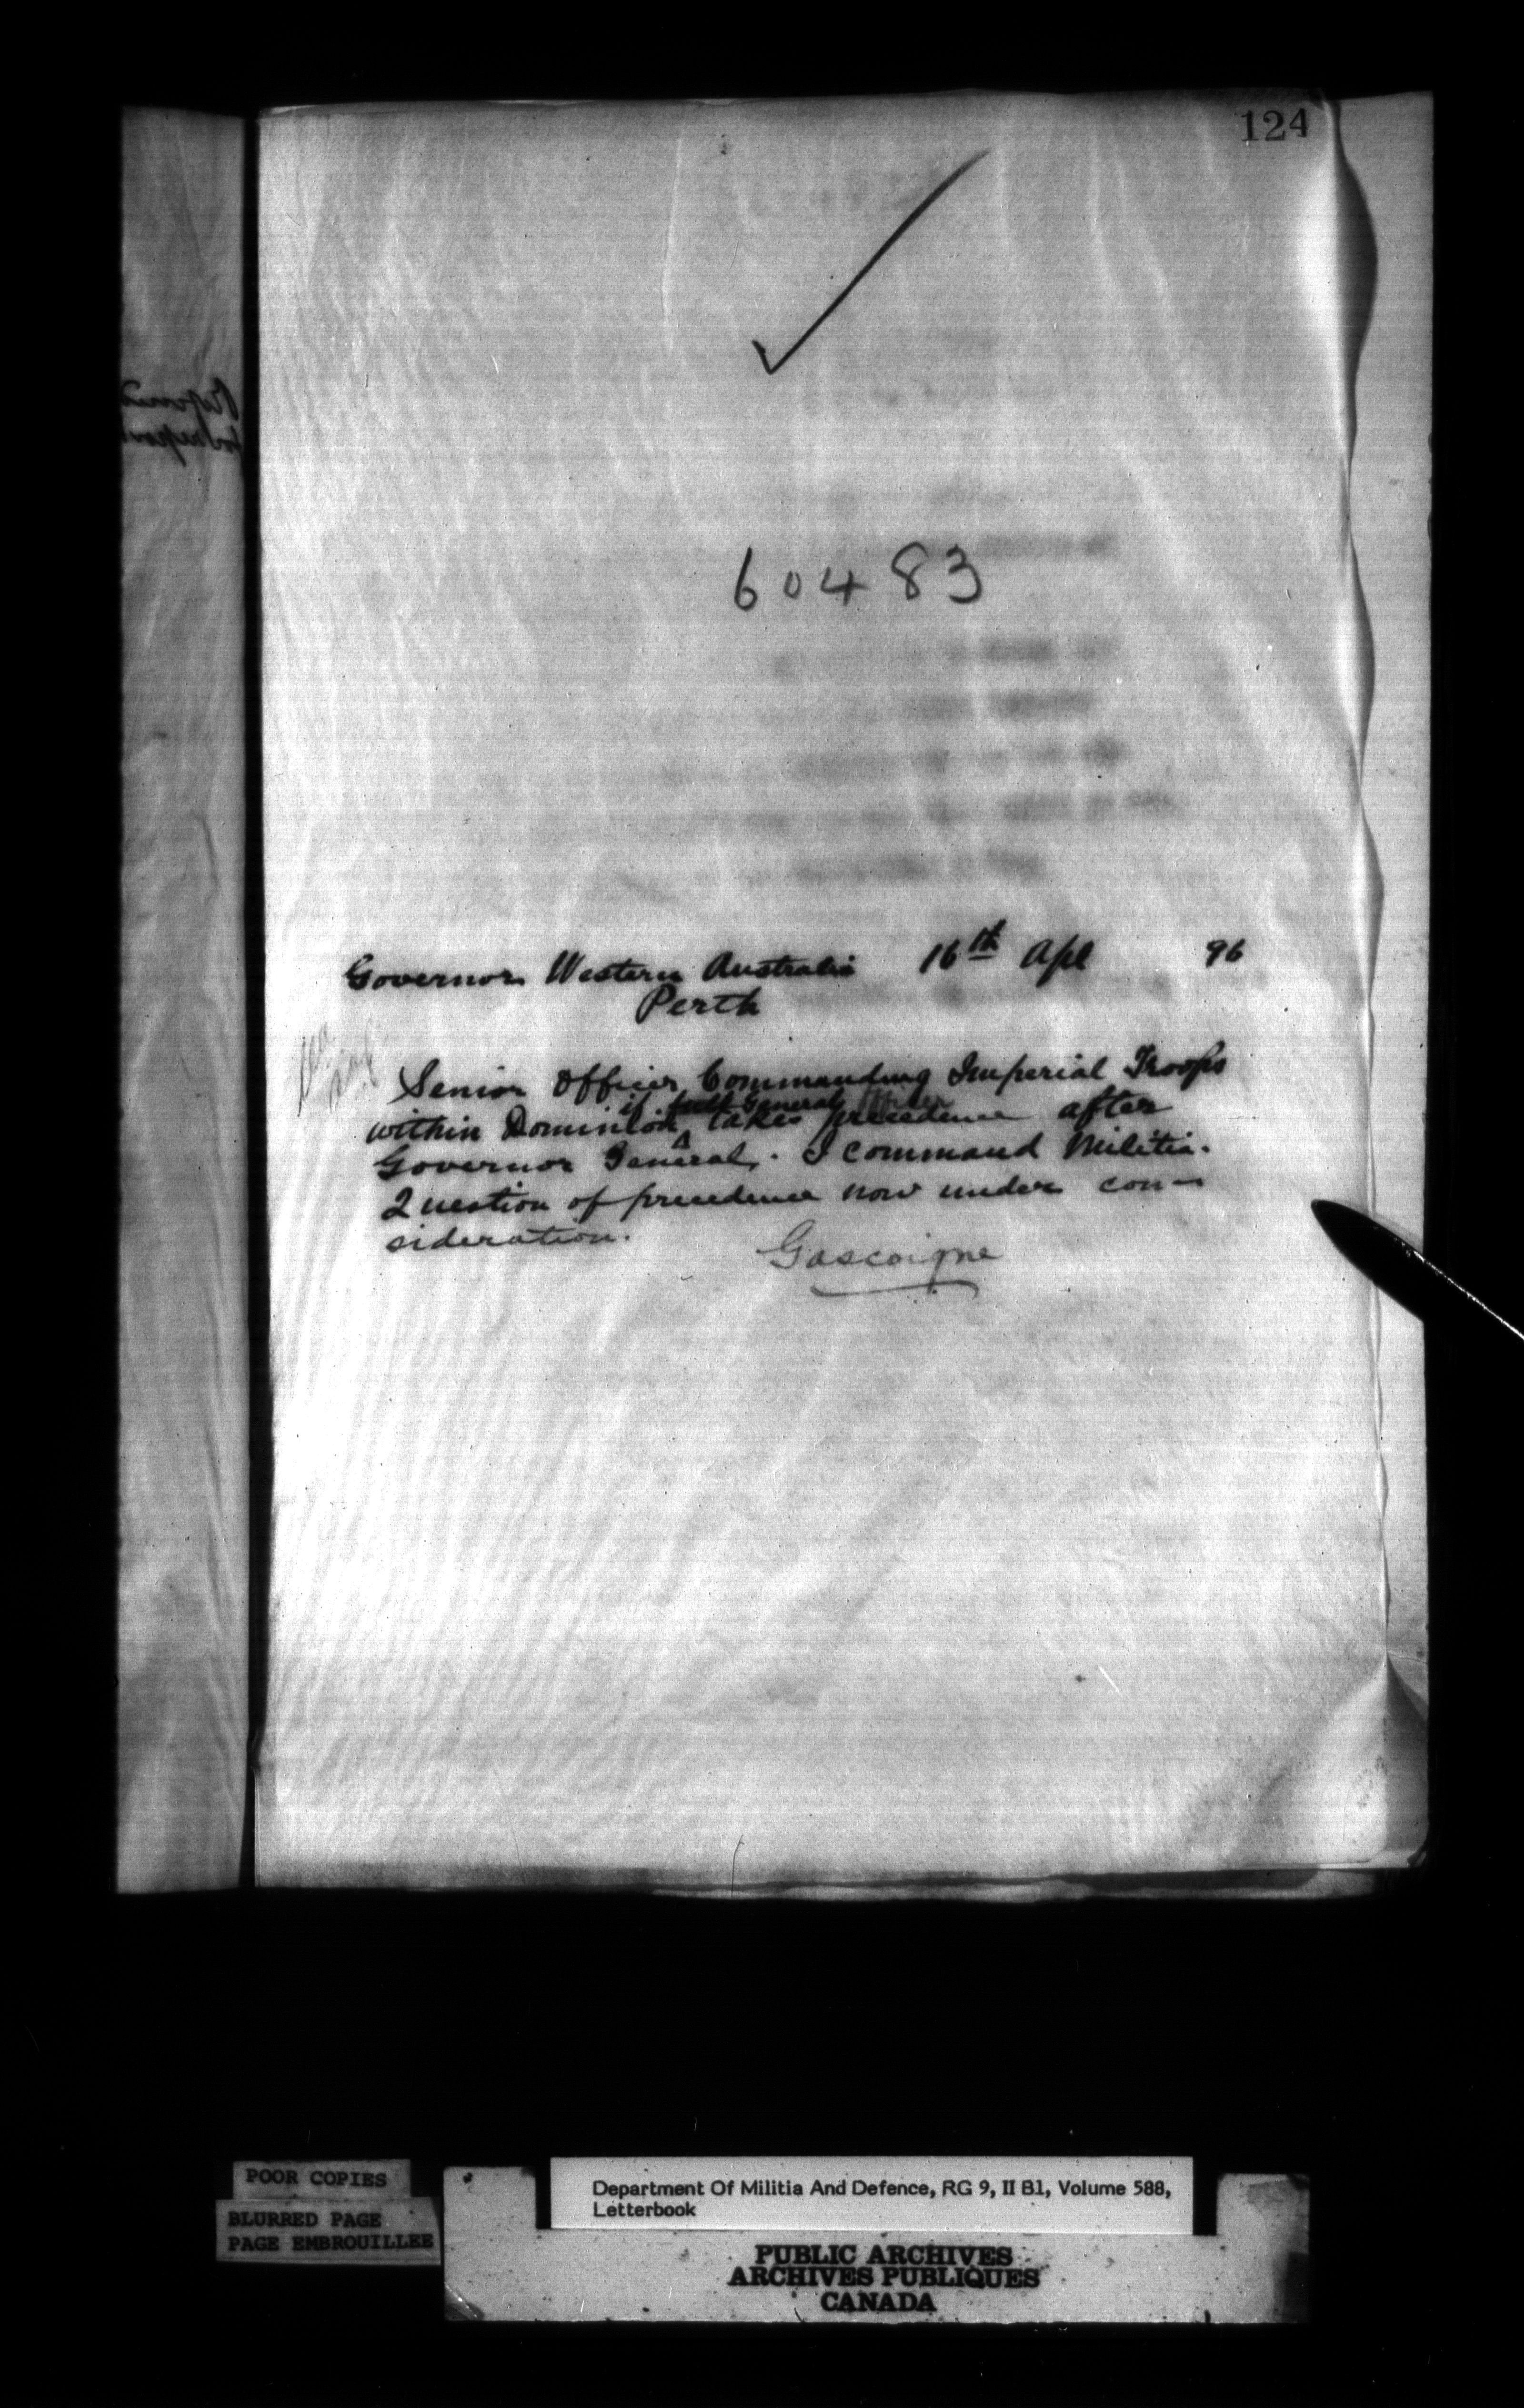 124
60483
Governor Western Australia 16th Apl 96
Perth
Senior Officer Commanding Imperial Troops
if full General Officer
within Dominion takes precedence after
Governor General. I command Militia.
Question of precedence now under con-
sideration.
Gascoigne
POOR COPIES
BLURRED PAGE
PAGE EMBROUILLEE
Department Of Militia And Defence, RG 9, II B1, Volume 588,
Letterbook
PUBLIC ARCHIVES
ARCHIVES PUBLIQUES
CANADA